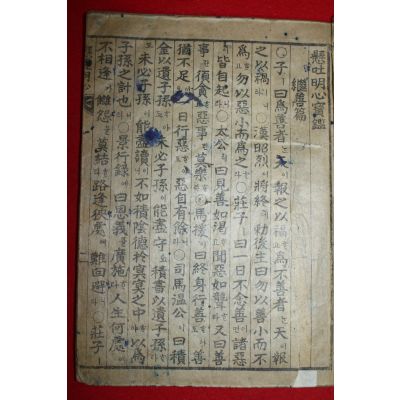 懸吐明心寶鑑
繼善篇
○子ㅣ曰爲善者는天이報之以福하고爲不善者는天이報
之以禍니라○漢昭烈이將終에勅後主曰勿以善小而不
爲하고勿以惡小而爲之하라○莊子ㅣ曰一日不念善이면諸惡
이皆自起니라○太公이曰見善如渴하고聞惡如聾하라又曰善
事란須貪하고惡事란莫樂하라○馬援이曰終身行善이라도善
猶不足이오一日行惡이라도惡自有餘니라○司馬溫公이曰積
金以遺子孫이라도未必子孫이能盡守오積書以遺子孫이라도
未必子孫이能盡讀이니不如積陰德於冥冥之中하야以爲
子孫之計也니라○景行錄에曰恩義를廣施하라人生何處에
不相逢가讐怨을莫結하라路逢狹處면難回避니라○莊子